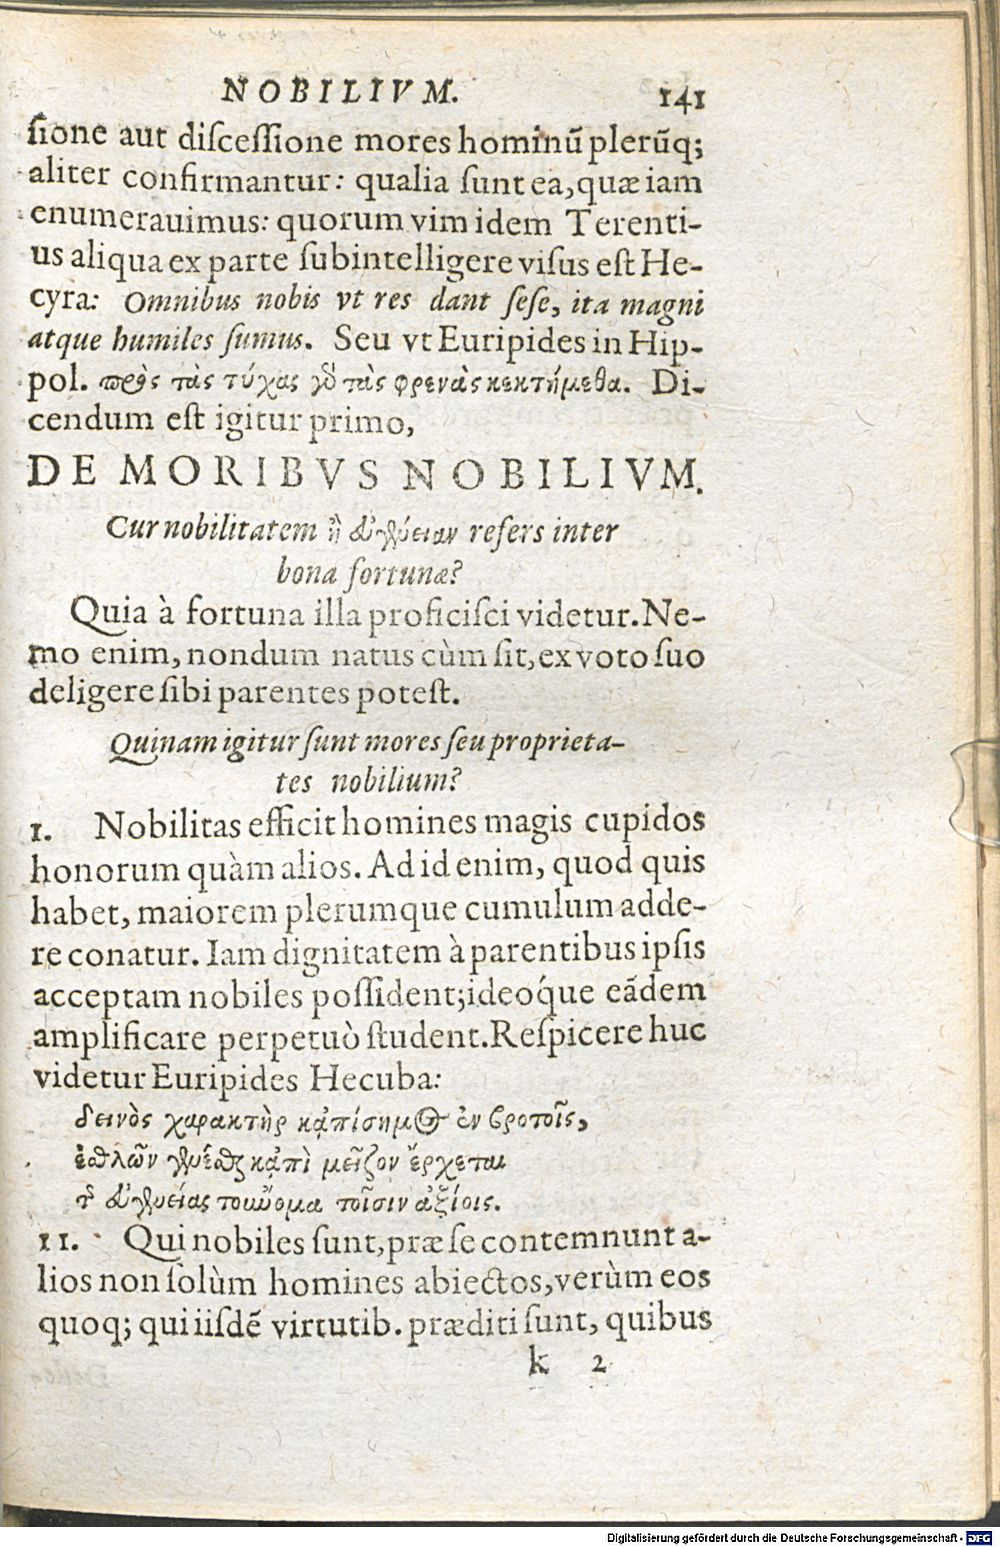 NOBILIVM. 141
ſione aut diſceſſione mores hominũ plerũq;
aliter confirmantur: qualia ſunt ea, quæ iam
enumerauimus: quorum vim idem Terenti-
us aliqua ex parte ſubintelligere viſus eſt He-
cyra: Omnibus nobis vt res dant ſeſe, ita magni
atque humiles ſumus. Seu vt Euripides in Hip-
pol. πρὸς τὰς τύχας γὸ τὰς φρενὰς κεκτήμεθα. Di-
cendum eſt igitur primo,
DE MORIBVS NOBILIVM.
Cur nobilitatem ἢ ἀυγένειαν refers inter
bona fortunæ?
Quia à fortuna illa proficiſci videtur. Ne-
mo enim, nondum natus cùm ſit, ex voto ſuo
deligere ſibi parentes poteſt.
Quinam igitur ſunt mores ſeu proprieta-
tes nobilium?
1. Nobilitas efficit homines magis cupidos
honorum quàm alios. Ad id enim, quod quis
habet, maiorem plerumque cumulum adde-
re conatur. Iam dignitatem à parentibus ipſis
acceptam nobiles poſſident; ideoq́ue eãdem
amplificare perpetuò ſtudent. Reſpicere huc
videtur Euripides Hecuba:
δεινὸς χαρακτὴρ κᾀπίσημος ἐν βροτοῖς,
ἐσθλῶν γενέσθαι κᾀπὶ μεῖζον ἔρχεται
τῆς ἐυγενείας τοὔνομα τοῖσιν ἀξίοις.
11. Qui nobiles ſunt, præ ſe contemnunt a-
lios non ſolùm homines abiectos, verùm eos
quoq; qui iiſdẽ virtutib. præditi ſunt, quibus
k 2
Digitalisierung gefördert durch die Deutsche Forschungsgemeinschaft - DFG